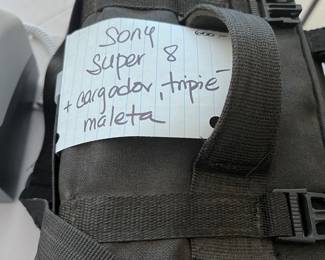 Sony
Super 8
+ cargador, tripie-
maleta